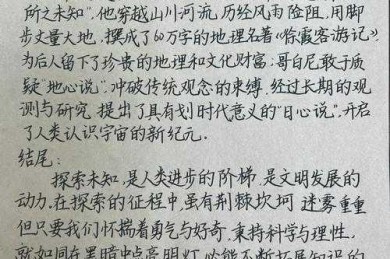 所之未知",他穿越山川河流,历经风雨险阻,用脚
步丈量大地,撰成了60万字的地理名著《徐霞客游记》,
为后人留下了珍贵的地理和文化财富;哥白尼敢于质
疑"地心说",冲破传统观念的束缚,经过长期的观
测与研究,提出了具有划时代意义的"日心说",开启
了人类认识宇宙的新纪元。
结尾:
探索未知,是人类进步的阶梯,是文明发展的
动力,在探索的征程中,虽有荆棘坎坷,迷雾重重
但只要我们怀揣着勇气与好奇,秉持科学与理性,
就如同在黑暗中点亮明灯,必能不断拓展知识的